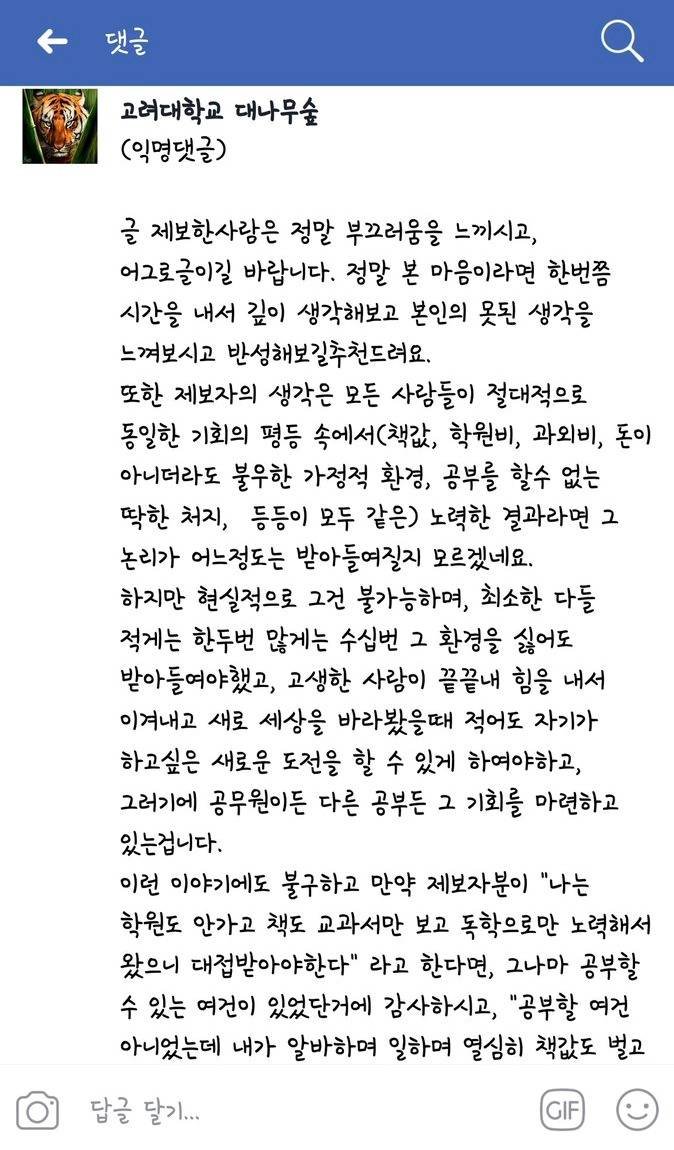 댓글
고려대학교 대나무숲
(익명댓글)
글 제보한사람은 정말 부끄러움을 느끼시고,
어그로글이길 바랍니다. 정말 본 마음이라면 한번쯤
시간을 내서 깊이 생각해보고 본인의 못된 생각을
느껴보시고 반성해보길추천드려요.
또한 제보자의 생각은 모든 사람들이 절대적으로
동일한 기회의 평등 속에서(책값, 학원비, 과외비, 돈이
아니더라도 불우한 가정적 환경, 공부를 할수 없는
딱한 처지, 등등이 모두 같은) 노력한 결과라면 그
논리가 어느정도는 받아들여질지 모르겠네요.
하지만 현실적으로 그건 불가능하며, 최소한 다들
적게는 한두번 많게는 수십번 그 환경을 싫어도
받아들여야했고, 고생한 사람이 끝끝내 힘을 내서
이겨내고 새로 세상을 바라봤을때 적어도 자기가
하고싶은 새로운 도전을 할 수 있게 하여야하고,
그러기에 공무원이든 다른 공부든 그 기회를 마련하고
있는겁니다.
이런 이야기에도 불구하고 만약 제보자분이 "나는
학원도 안가고 책도 교과서만 보고 독학으로만 노력해서
왔으니 대접받아야한다" 라고 한다면, 그나마 공부할
수 있는 여건이 있었단거에 감사하시고, "공부할 여건
아니었는데 내가 알바하며 일하며 열심히 책값도 벌고
답글 달기...
GIF